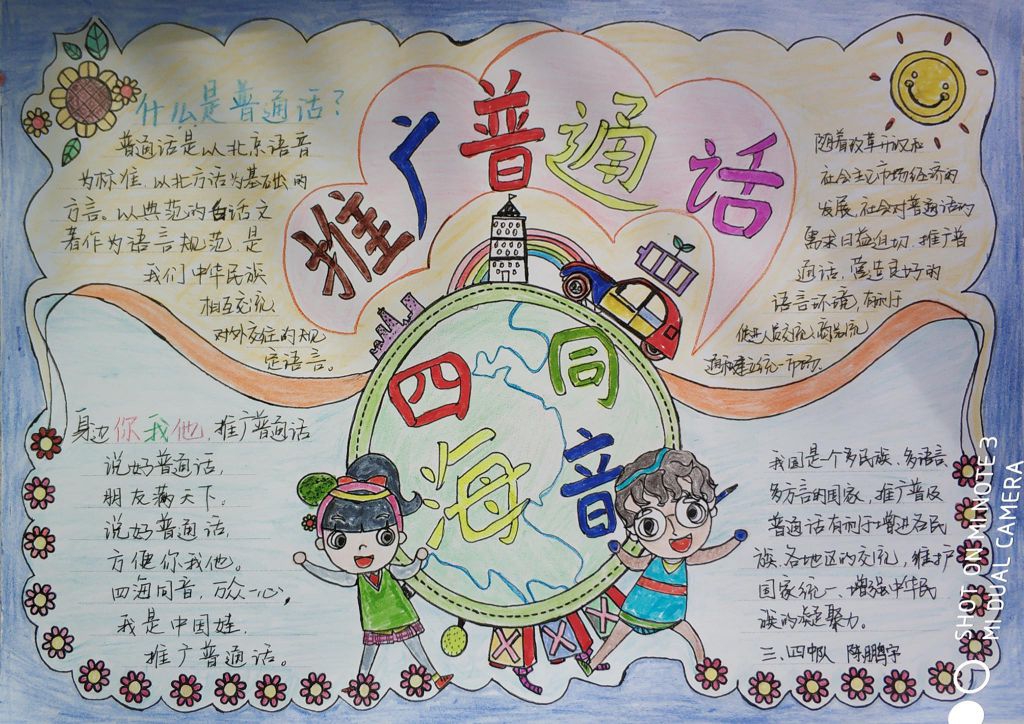 推广普通话
什么是普通话？
普通话是以北京语音
为标准，以北方话为基础的
方言。以典范的白话文
著作为语言规范，是
我们中华民族
相互交流、
对外交往的规
定语言。
随着改革开放和
社会主义市场经济的
发展，社会对普通话的
需求日益迫切。推广普
通话，营造良好的
语言环境，有利于
促进人员交流，商品流
通和建立统一市场。
四海同音
身边你我他，推广普通话
说好普通话，
朋友满天下。
说好普通话，
方便你我他。
四海同音，万众一心，
我是中国娃，
推广普通话。
我国是个多民族、多语言、
多方言的国家，推广普及
普通话有利于增进各民
族、各地区的交流，维护
国家统一，增强中华民
族的凝聚力。
三、四中队 陈鹏宇
SHOT ON MI NOTE 3
MI DUAL CAMERA